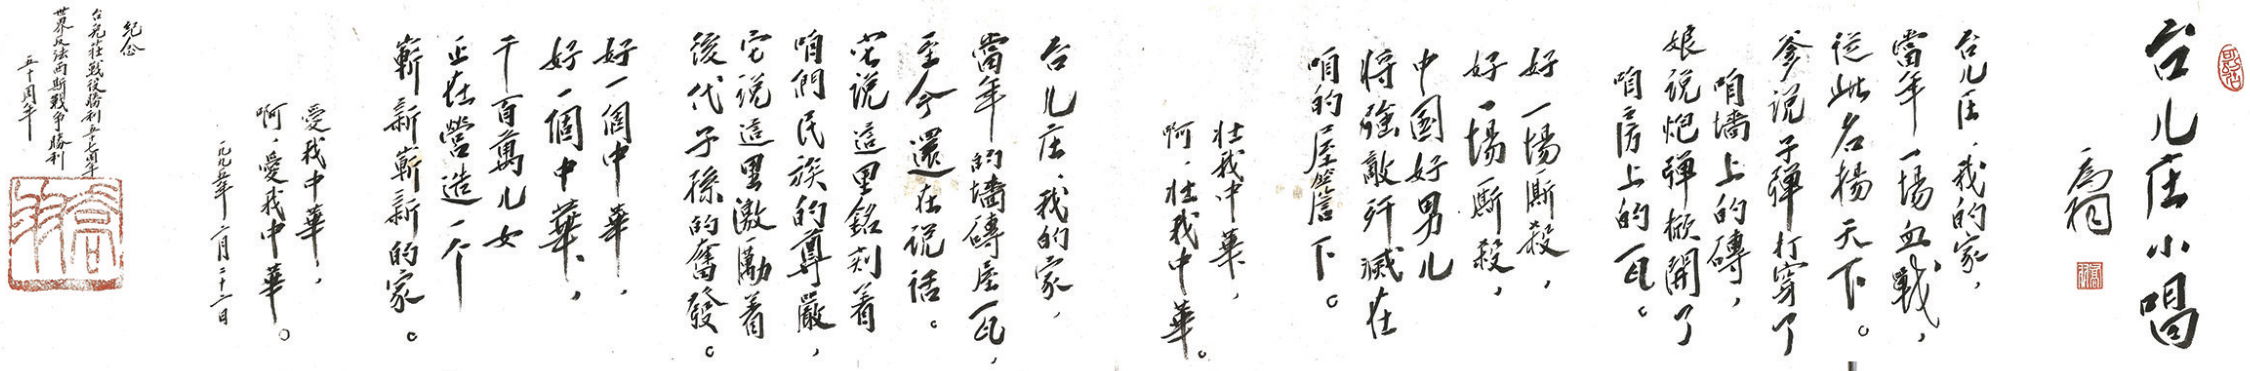 台儿庄小唱
乔羽词
台儿庄，我的家，
當年一場血戰，
從此名揚天下。
爹说子弹打穿了
咱墻上的磚，
娘说炮弹掀開了
咱房上的瓦。
好一場廝殺，
好一場廝殺，
中國好男儿
将強敵歼滅在
咱的屋簷下。
壮我中華，
啊，壮我中華。
台儿庄，我的家，
當年的墻磚屋瓦，
至今還在说话。
它说這里銘刻着
咱們民族的尊嚴，
它说這里激勵着
後代子孫的奮發。
好一個中華，
好一個中華，
千百萬儿女
正在營造一个
嶄新嶄新的家。
愛我中華，
啊，愛我中華。
一九九五年二月二十二日
纪念
台兒莊戰役勝利五十七周年
世界反法西斯戰争勝利
五十周年
喬羽